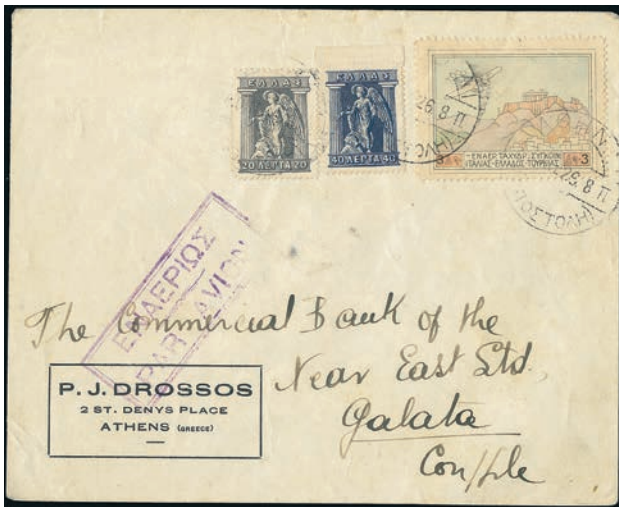 ΕΛΛΑΣ
20 ΛΕΠΤΑ 20
ΕΛΛΑΣ
40 ΛΕΠΤΑ 40
ΕΝΑΕΡ. ΤΑΧΥΔΡ. ΣΥΓΚΟΙΝ.
ΙΤΑΛΙΑΣ-ΕΛΛΑΔΟΣ-ΤΟΥΡΚΙΑΣ
3
26. 8 Π
26. 8 Π
ΠΟΣΤΟΛΗ
ΕΝΑΕΡΙΩΣ
PAR AVION
The Commercial Bank of the
Near East Ltd.,
Galata
Con/ple
P. J. DROSSOS
2 ST. DENYS PLACE
ATHENS (GREECE)